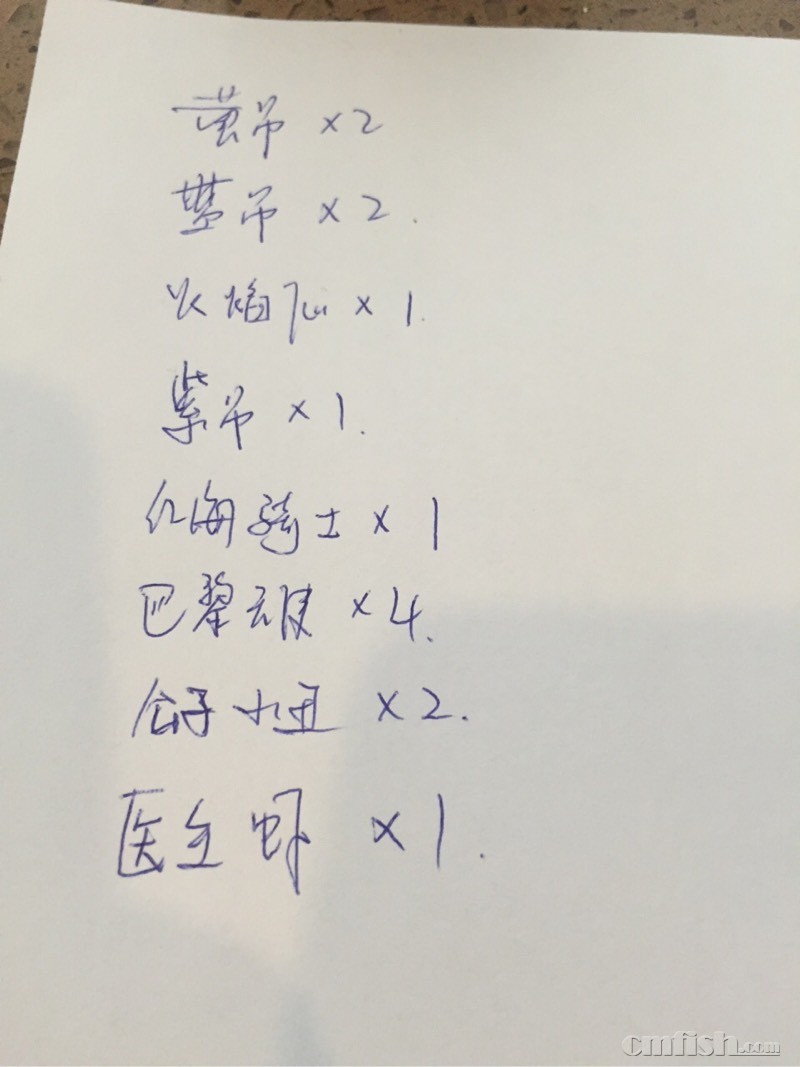 黄吊 x2
蓝吊 x2.
火焰仙 x 1.
紫吊 x1.
红海骑士 x 1
巴翠 x4.
公子小丑 x2.
医生虾 x1.
cmfish.com